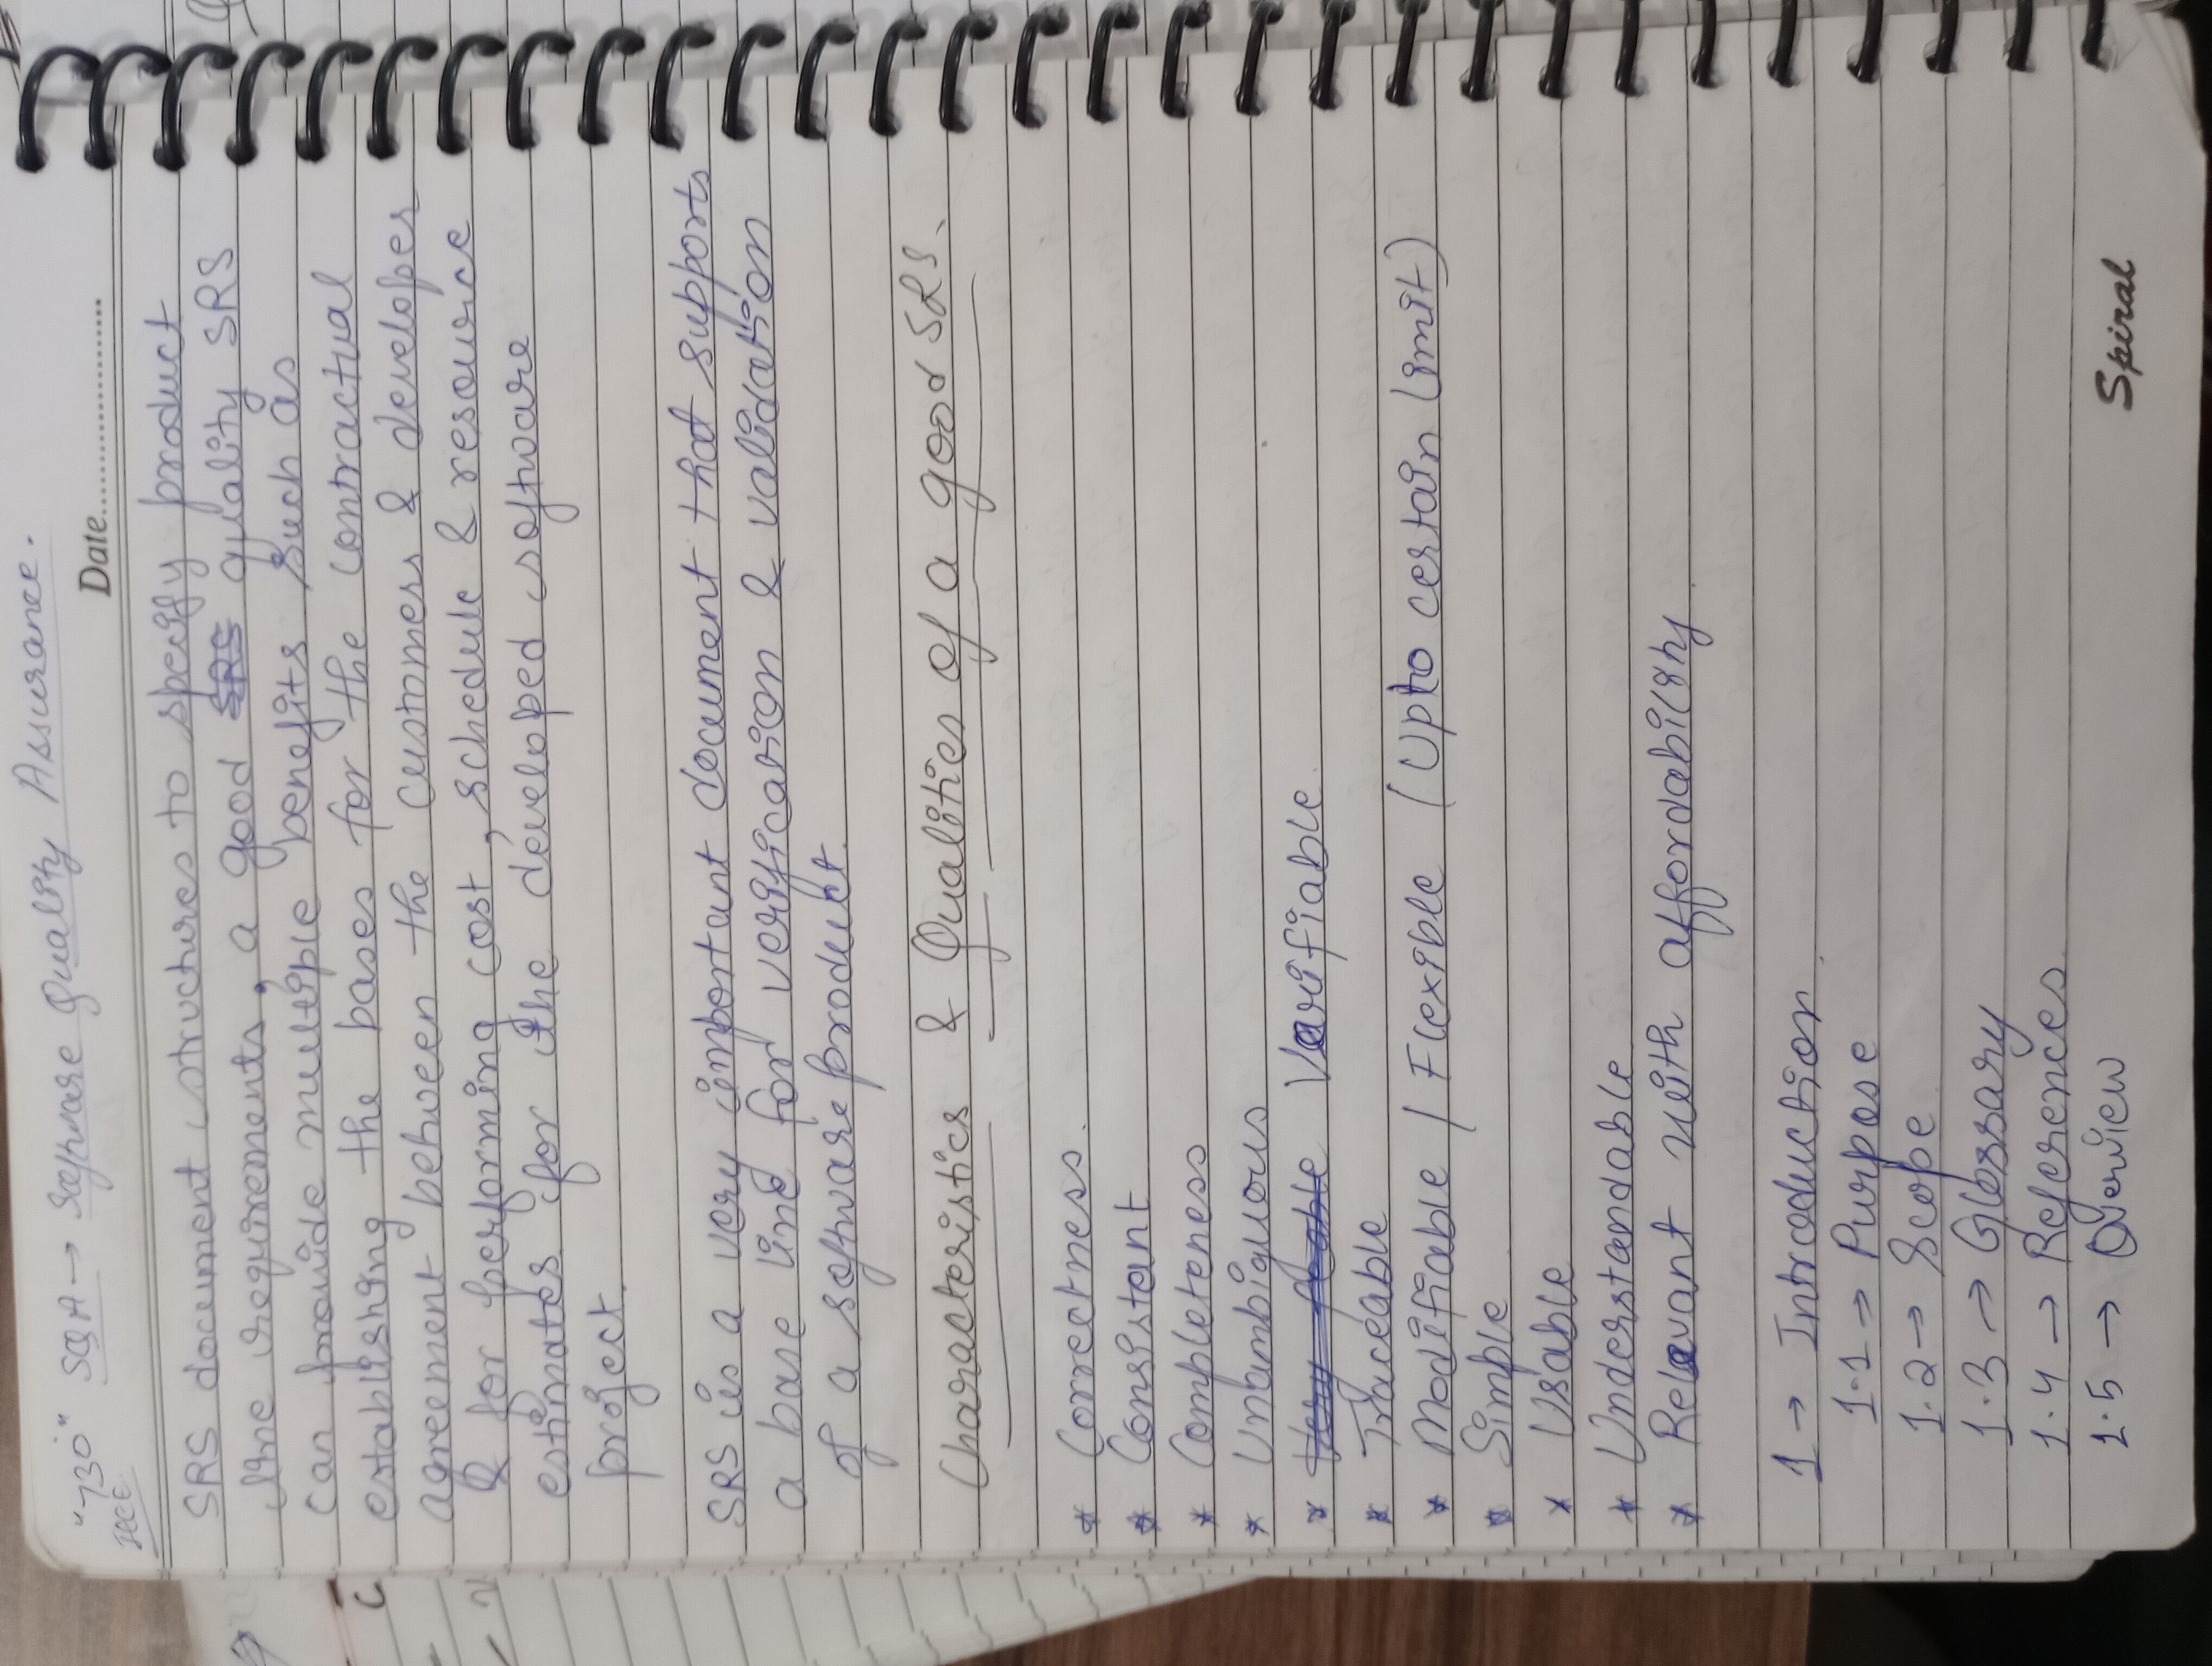 "730" SQA → Software Quality Assurance.
Date
SRS document structures to specify product
the requirements, a good quality SRS
can provide multiple benefits such as
establishing the bases for the contractual
agreement between the customers & developer
& for performing cost, schedule & resource
estimates for the developed software
project.
SRS is a very important document that supports
a base line for verification & validation
of a software product.
Characteristics & Qualities of a good SRS.
* Correctness.
* Consistant
* Completeness
* Unambiguous
* Varifiable.
* Traceable
* Modifiable / Flexible (Upto certain limit)
* Simple
* Usable
* Understandable
* Relevant with affordability
1 → Introduction.
1.1 → Purpose
1.2 → Scope
1.3 → Glossary
1.4 → References
1.5 → Overview
Spiral